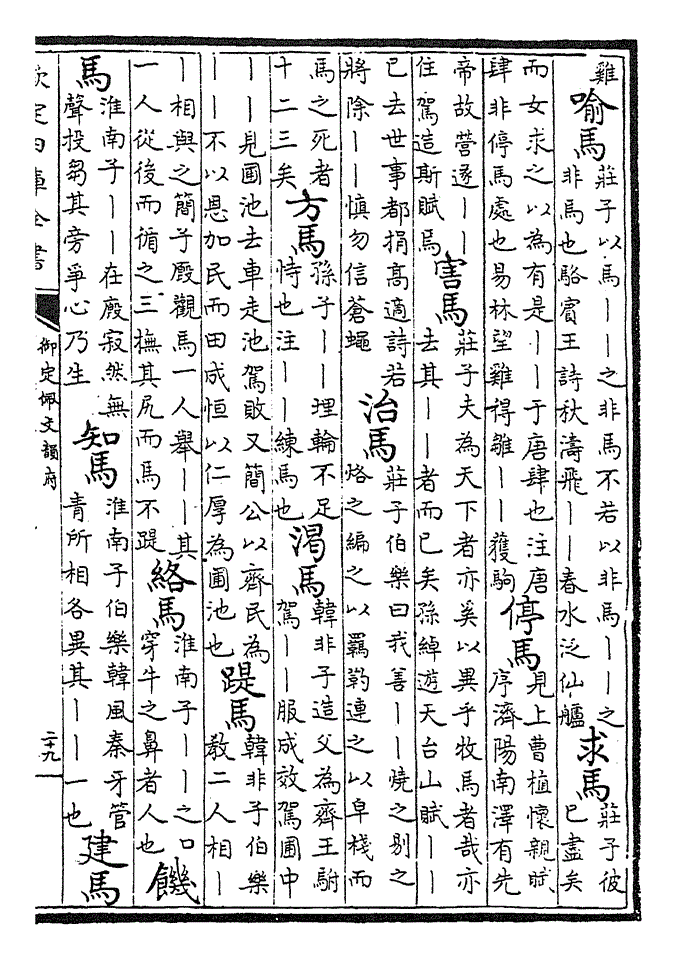 雞
喻馬
莊子以馬丨丨之非馬不若以非馬丨丨之
非馬也駱賓王詩秋濤飛丨丨春水泛仙艫
求馬
莊子彼
已盡矣
而女求之以為有是丨丨于唐肆也注唐
肆非停馬處也易林望雞得雛丨丨獲駒
停馬
見上曹植懷親賦
序濟陽南澤有先
帝故營遂丨丨
住駕造斯賦焉
害馬
莊子夫為天下者亦奚以異乎牧馬者哉亦
去其丨丨者而已矣孫綽遊天台山賦丨丨
已去世事都捐高適詩若
將除丨丨慎勿信蒼蠅
治馬
莊子伯樂曰我善丨丨燒之剔之
烙之編之以羈靮連之以皁棧而
馬之死者
十二三矣
方馬
孫子丨丨理輪不足
恃也注丨丨練馬也
渴馬
韓非子造父為齊王駙
駕丨丨服成效駕圃中
丨丨見圃池去車走池駕敗又簡公以齊民為
丨丨不以恩加民而田成恒以仁厚為圃池也
踶馬
韓非子伯樂
教二人相丨
丨相與之簡子廄觀馬一人舉丨丨其
一人從後而循之三撫其尻而馬不踶
絡馬
淮南子丨丨之口
穿牛之鼻者人也
饑
馬
淮南子丨丨在廄寂然無
聲投芻其旁爭心乃生
知馬
淮南子伯樂韓風秦牙管
青所相各異其丨丨一也
建馬
欽定四庫全書
御定佩文韻府
二十九